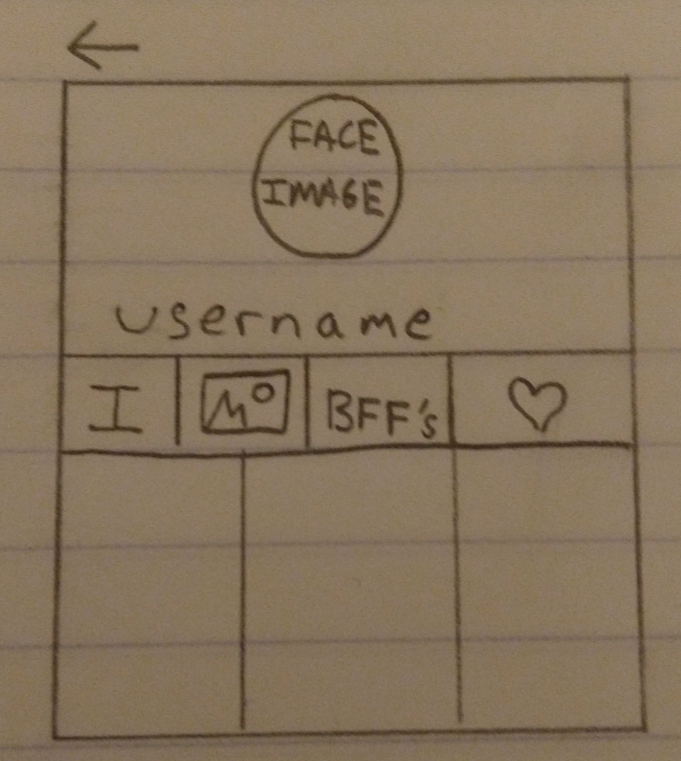 FACE
IMAGE
username
I
BFF's